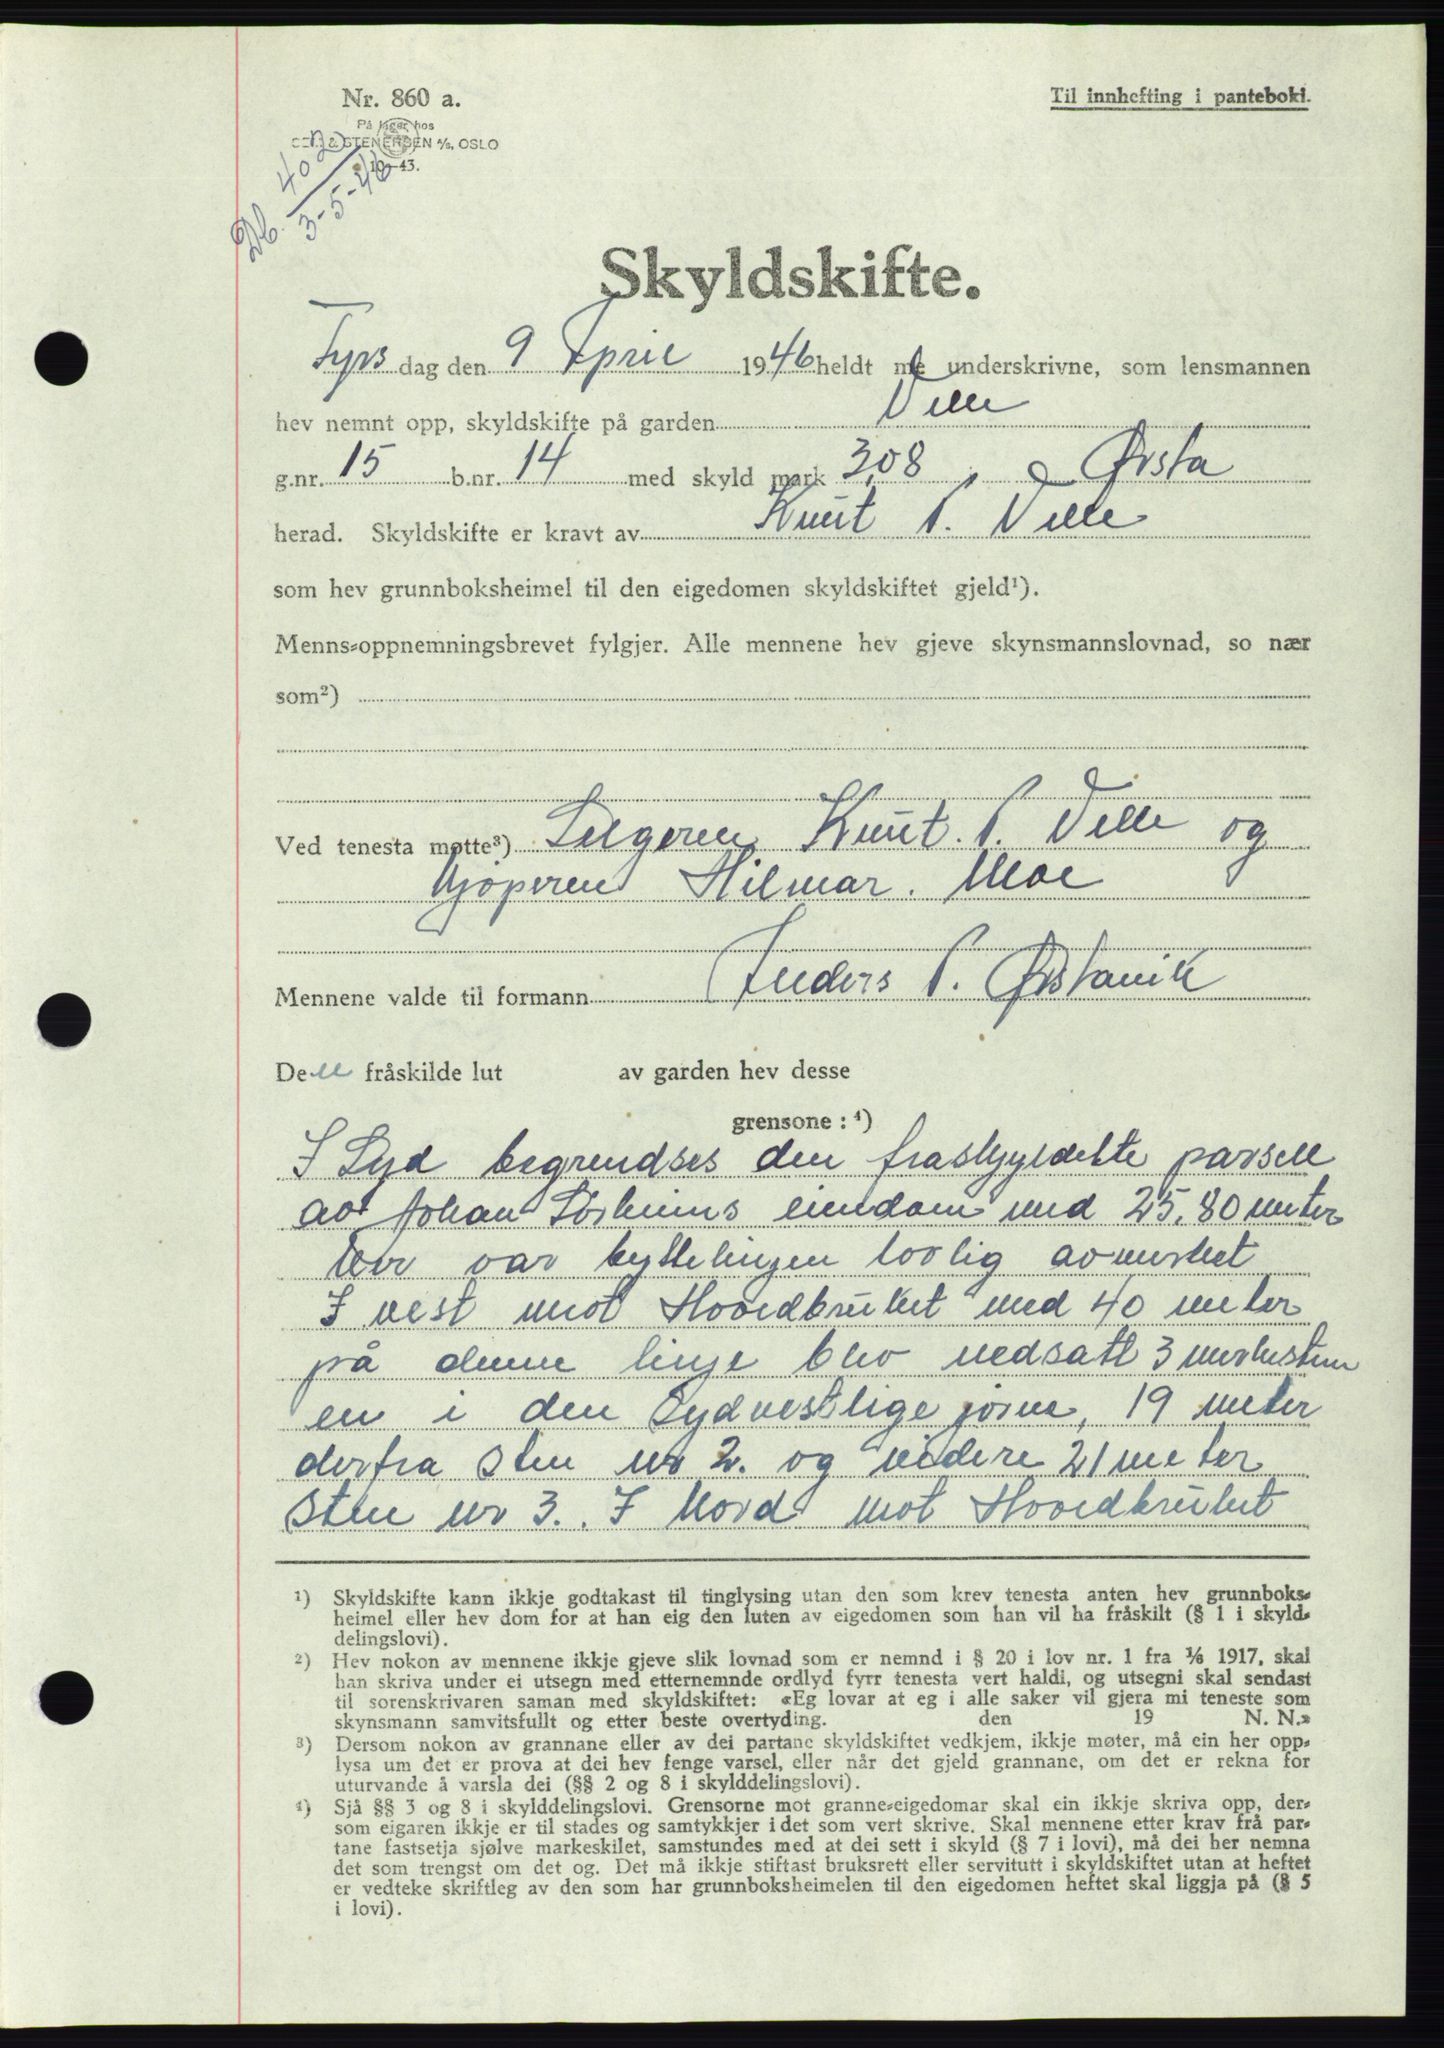 Nr. 860 a.
Til innhefting i panteboki.
På lager hos
& STENERSEN A/S, OSLO
10-43.
Db. 402
3-5-46
Skyldskifte.
Tyrs dag den 9 April 1946 heldt me underskrivne, som lensmannen
hev nemnt opp, skyldskifte på garden Velle
g.nr. 15 b.nr. 14 med skyld mark 3,08 Ørsta
herad. Skyldskifte er kravt av Knut P. Velle
som hev grunnboksheimel til den eigedomen skyldskiftet gjeld¹).
Menns-oppnemningsbrevet fylgjer. Alle mennene hev gjeve skynsmannslovnad, so nær
som²)
Ved tenesta møtte³) Selgeren Knut. P. Velle og
Kjøperen Hilmar. Moe
Mennene valde til formann Anders P. Ørstavik
Den fråskilde lut av garden hev desse
grensone: ⁴)
I Syd begrendses den fraskyldelte parsell
av Johan Sørheims eiendom med 25,80 meter
her var byttelinjen lovlig avmerket
I vest mot Hovedbruket med 40 meter
på denne linje blev nedsatt 3 merkesten
en i den Sydvestlige jørne, 19 meter
derfra Sten nr 2. og videre 21 meter
Sten nr 3.. I Nord mot Hovedbruket
¹) Skyldskifte kann ikkje godtakast til tinglysing utan den som krev tenesta anten hev grunnboks-
heimel eller hev dom for at han eig den luten av eigedomen som han vil ha fråskilt (§ 1 i skyld-
delingslovi).
²) Hev nokon av mennene ikkje gjeve slik lovnad som er nemnd i § 20 i lov nr. 1 fra 1/6 1917, skal
han skriva under ei utsegn med etternemnde ordlyd fyrr tenesta vert haldi, og utsegni skal sendast
til sorenskrivaren saman med skyldskiftet: «Eg lovar at eg i alle saker vil gjera mi teneste som
skynsmann samvitsfullt og etter beste overtyding. den 19 N. N.»
³) Dersom nokon av grannane eller av dei partane skyldskiftet vedkjem, ikkje møter, må ein her opp-
lysa um det er prova at dei hev fenge varsel, eller når det gjeld grannane, om det er rekna for
uturvande å varsla dei (§§ 2 og 8 i skylddelingslovi).
⁴) Sjå §§ 3 og 8 i skylddelingslovi. Grensorne mot granne-eigedomar skal ein ikkje skriva opp, der-
som eigaren ikkje er til stades og samtykkjer i det som vert skrive. Skal mennene etter krav frå par-
tane fastsetja sjølve markeskilet, samstundes med at dei sett i skyld (§ 7 i lovi), må dei her nemna
det som trengst om det og. Det må ikkje stiftast bruksrett eller servitutt i skyldskiftet utan at heftet
er vedteke skriftleg av den som har grunnboksheimelen til den eigedomen heftet skal liggja på (§ 5
i lovi).